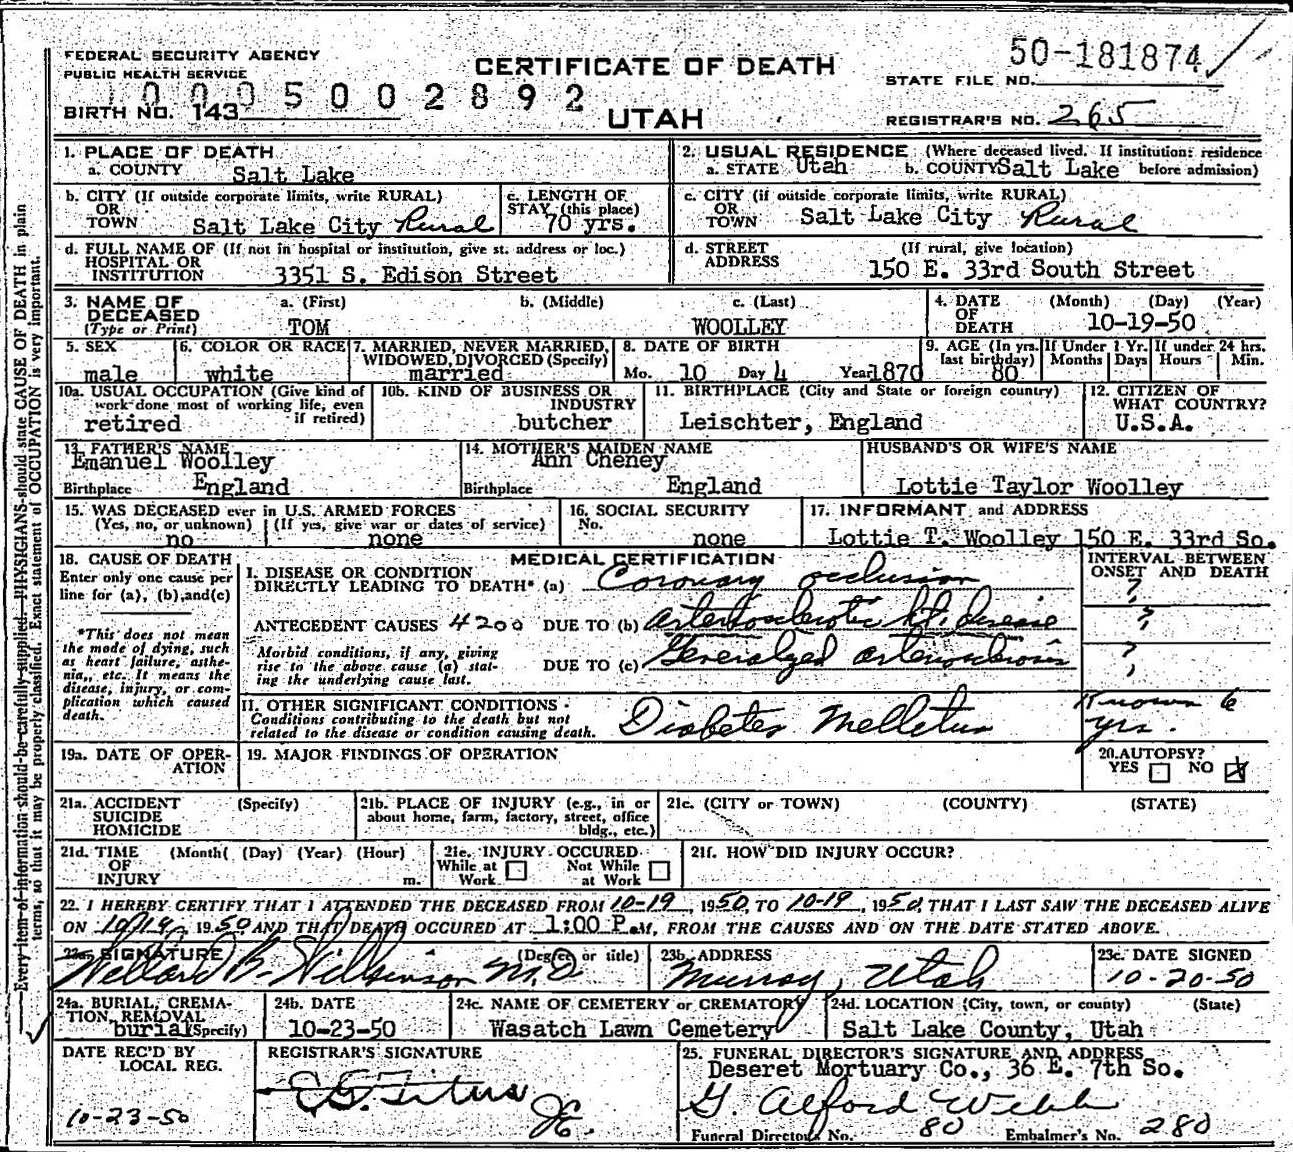 FEDERAL SECURITY AGENCY
PUBLIC HEALTH SERVICE
10005002892
BIRTH NO. 143
CERTIFICATE OF DEATH
UTAH
50-181874
STATE FILE NO.
REGISTRAR'S NO. 265
1. PLACE OF DEATH
a. COUNTY Salt Lake
2. USUAL RESIDENCE (Where deceased lived. If institution: residence before admission)
a. STATE Utah b. COUNTY Salt Lake
b. CITY (If outside corporate limits, write RURAL)
OR
TOWN Salt Lake City Rural
c. LENGTH OF
STAY (this place)
70 yrs.
c. CITY (if outside corporate limits, write RURAL)
OR
TOWN Salt Lake City Rural
d. FULL NAME OF (If not in hospital or institution, give st. address or loc.)
HOSPITAL OR
INSTITUTION 3351 S. Edison Street
d. STREET (If rural, give location)
ADDRESS 150 E. 33rd South Street
3. NAME OF DECEASED
(Type or Print)
a. (First) b. (Middle) c. (Last)
TOM WOOLLEY
4. DATE (Month) (Day) (Year)
OF
DEATH 10-19-50
5. SEX
male
6. COLOR OR RACE
white
7. MARRIED, NEVER MARRIED,
WIDOWED, DIVORCED (Specify)
married
8. DATE OF BIRTH
Mo. 10 Day 4 Year 1870
9. AGE (In yrs. last birthday)
80
If Under 1 Yr.
Months Days
If under 24 hrs.
Hours Min.
10a. USUAL OCCUPATION (Give kind of
work done most of working life, even
if retired)
retired
10b. KIND OF BUSINESS OR
INDUSTRY
butcher
11. BIRTHPLACE (City and State or foreign country)
Leischter, England
12. CITIZEN OF
WHAT COUNTRY?
U.S.A.
13. FATHER'S NAME
Emanuel Woolley
Birthplace England
14. MOTHER'S MAIDEN NAME
Ann Cheney
Birthplace England
HUSBAND'S OR WIFE'S NAME
Lottie Taylor Woolley
15. WAS DECEASED ever in U.S. ARMED FORCES
(Yes, no, or unknown) (If yes, give war or dates of service)
no none
16. SOCIAL SECURITY
No.
none
17. INFORMANT and ADDRESS
Lottie T. Woolley 150 E. 33rd So.
18. CAUSE OF DEATH
Enter only one cause per
line for (a), (b), and (c)
*This does not mean
the mode of dying, such
as heart failure, asthe-
nia, etc. It means the
disease, injury, or com-
plication which caused
death.
MEDICAL CERTIFICATION
I. DISEASE OR CONDITION
DIRECTLY LEADING TO DEATH* (a) Coronary occlusion
ANTECEDENT CAUSES 4200 DUE TO (b) Arteriosclerotic ht. disease
Morbid conditions, if any, giving
rise to the above cause (a) stat-
ing the underlying cause last.
DUE TO (c) Generalized arteriosclerosis
II. OTHER SIGNIFICANT CONDITIONS -
Conditions contributing to the death but not
related to the disease or condition causing death.
Diabetes Melletus
INTERVAL BETWEEN
ONSET AND DEATH
?
?
?
Known 6
yrs.
19a. DATE OF OPER-
ATION
19. MAJOR FINDINGS OF OPERATION
20. AUTOPSY?
YES NO
21a. ACCIDENT (Specify)
SUICIDE
HOMICIDE
21b. PLACE OF INJURY (e.g., in or
about home, farm, factory, street, office
bldg., etc.)
21c. (CITY or TOWN) (COUNTY) (STATE)
21d. TIME (Month( (Day) (Year) (Hour)
OF
INJURY m.
21e. INJURY OCCURED
While at Work Not While at Work
21f. HOW DID INJURY OCCUR?
22. I HEREBY CERTIFY THAT I ATTENDED THE DECEASED FROM 10-19, 1950, TO 10-19, 1950, THAT I LAST SAW THE DECEASED ALIVE
ON 10/19, 1950 AND THAT DEATH OCCURED AT 1:00 P.M, FROM THE CAUSES AND ON THE DATE STATED ABOVE.
23a. SIGNATURE (Degree or title)
Willard B. Wilkinson M.D
23b. ADDRESS
Murray, Utah
23c. DATE SIGNED
10-20-50
24a. BURIAL, CREMA-
TION, REMOVAL
burial (Specify)
24b. DATE
10-23-50
24c. NAME OF CEMETERY or CREMATORY
Wasatch Lawn Cemetery
24d. LOCATION (City, town, or county) (State)
Salt Lake County, Utah
DATE REC'D BY
LOCAL REG.
10-23-50
REGISTRAR'S SIGNATURE
25. FUNERAL DIRECTOR'S SIGNATURE AND ADDRESS
Deseret Mortuary Co., 36 E. 7th So.
G. Alford Webb
Funeral Directors No. 80 Embalmer's No. 280
Every item of information should be carefully supplied. PHYSICIANS should state CAUSE OF DEATH in plain
terms, so that it may be properly classified. Exact statement of OCCUPATION is very important.